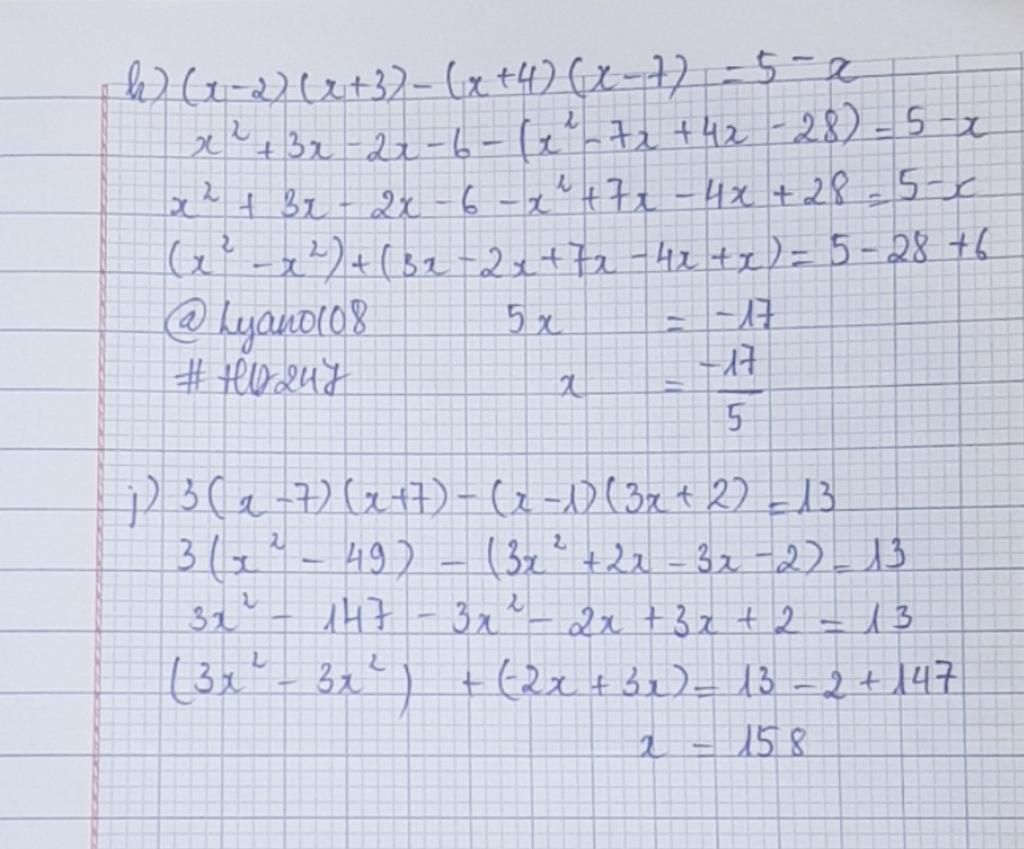 h) (x-2)(x+3) - (x+4)(x-7) = 5 - x
x² + 3x - 2x - 6 - (x² - 7x + 4x - 28) = 5 - x
x² + 3x - 2x - 6 - x² + 7x - 4x + 28 = 5 - x
(x² - x²) + (3x - 2x + 7x - 4x + x) = 5 - 28 + 6
@Lyano108 5x = -17
#HD247 x = -17/5
j) 3(x-7)(x+7) - (x-1)(3x+2) = 13
3(x² - 49) - (3x² + 2x - 3x - 2) = 13
3x² - 147 - 3x² - 2x + 3x + 2 = 13
(3x² - 3x²) + (-2x + 3x) = 13 - 2 + 147
x = 158